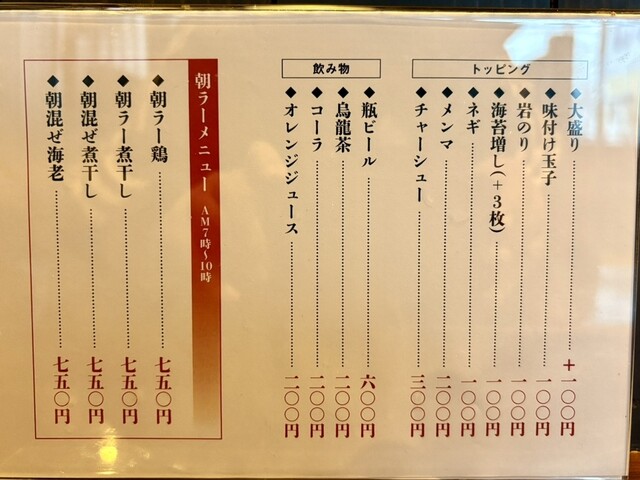 トッピング
◆大盛り ＋一〇〇円
◆味付け玉子 一〇〇円
◆岩のり 一〇〇円
◆海苔増し(+3枚) 一〇〇円
◆ネギ 一〇〇円
◆メンマ 二〇〇円
◆チャーシュー 三〇〇円
飲み物
◆瓶ビール 六〇〇円
◆烏龍茶 二〇〇円
◆コーラ 二〇〇円
◆オレンジジュース 二〇〇円
朝ラーメニュー AM7時〜10時
◆朝ラー鶏 七五〇円
◆朝ラー煮干し 七五〇円
◆朝混ぜ煮干し 七五〇円
◆朝混ぜ海老 七五〇円